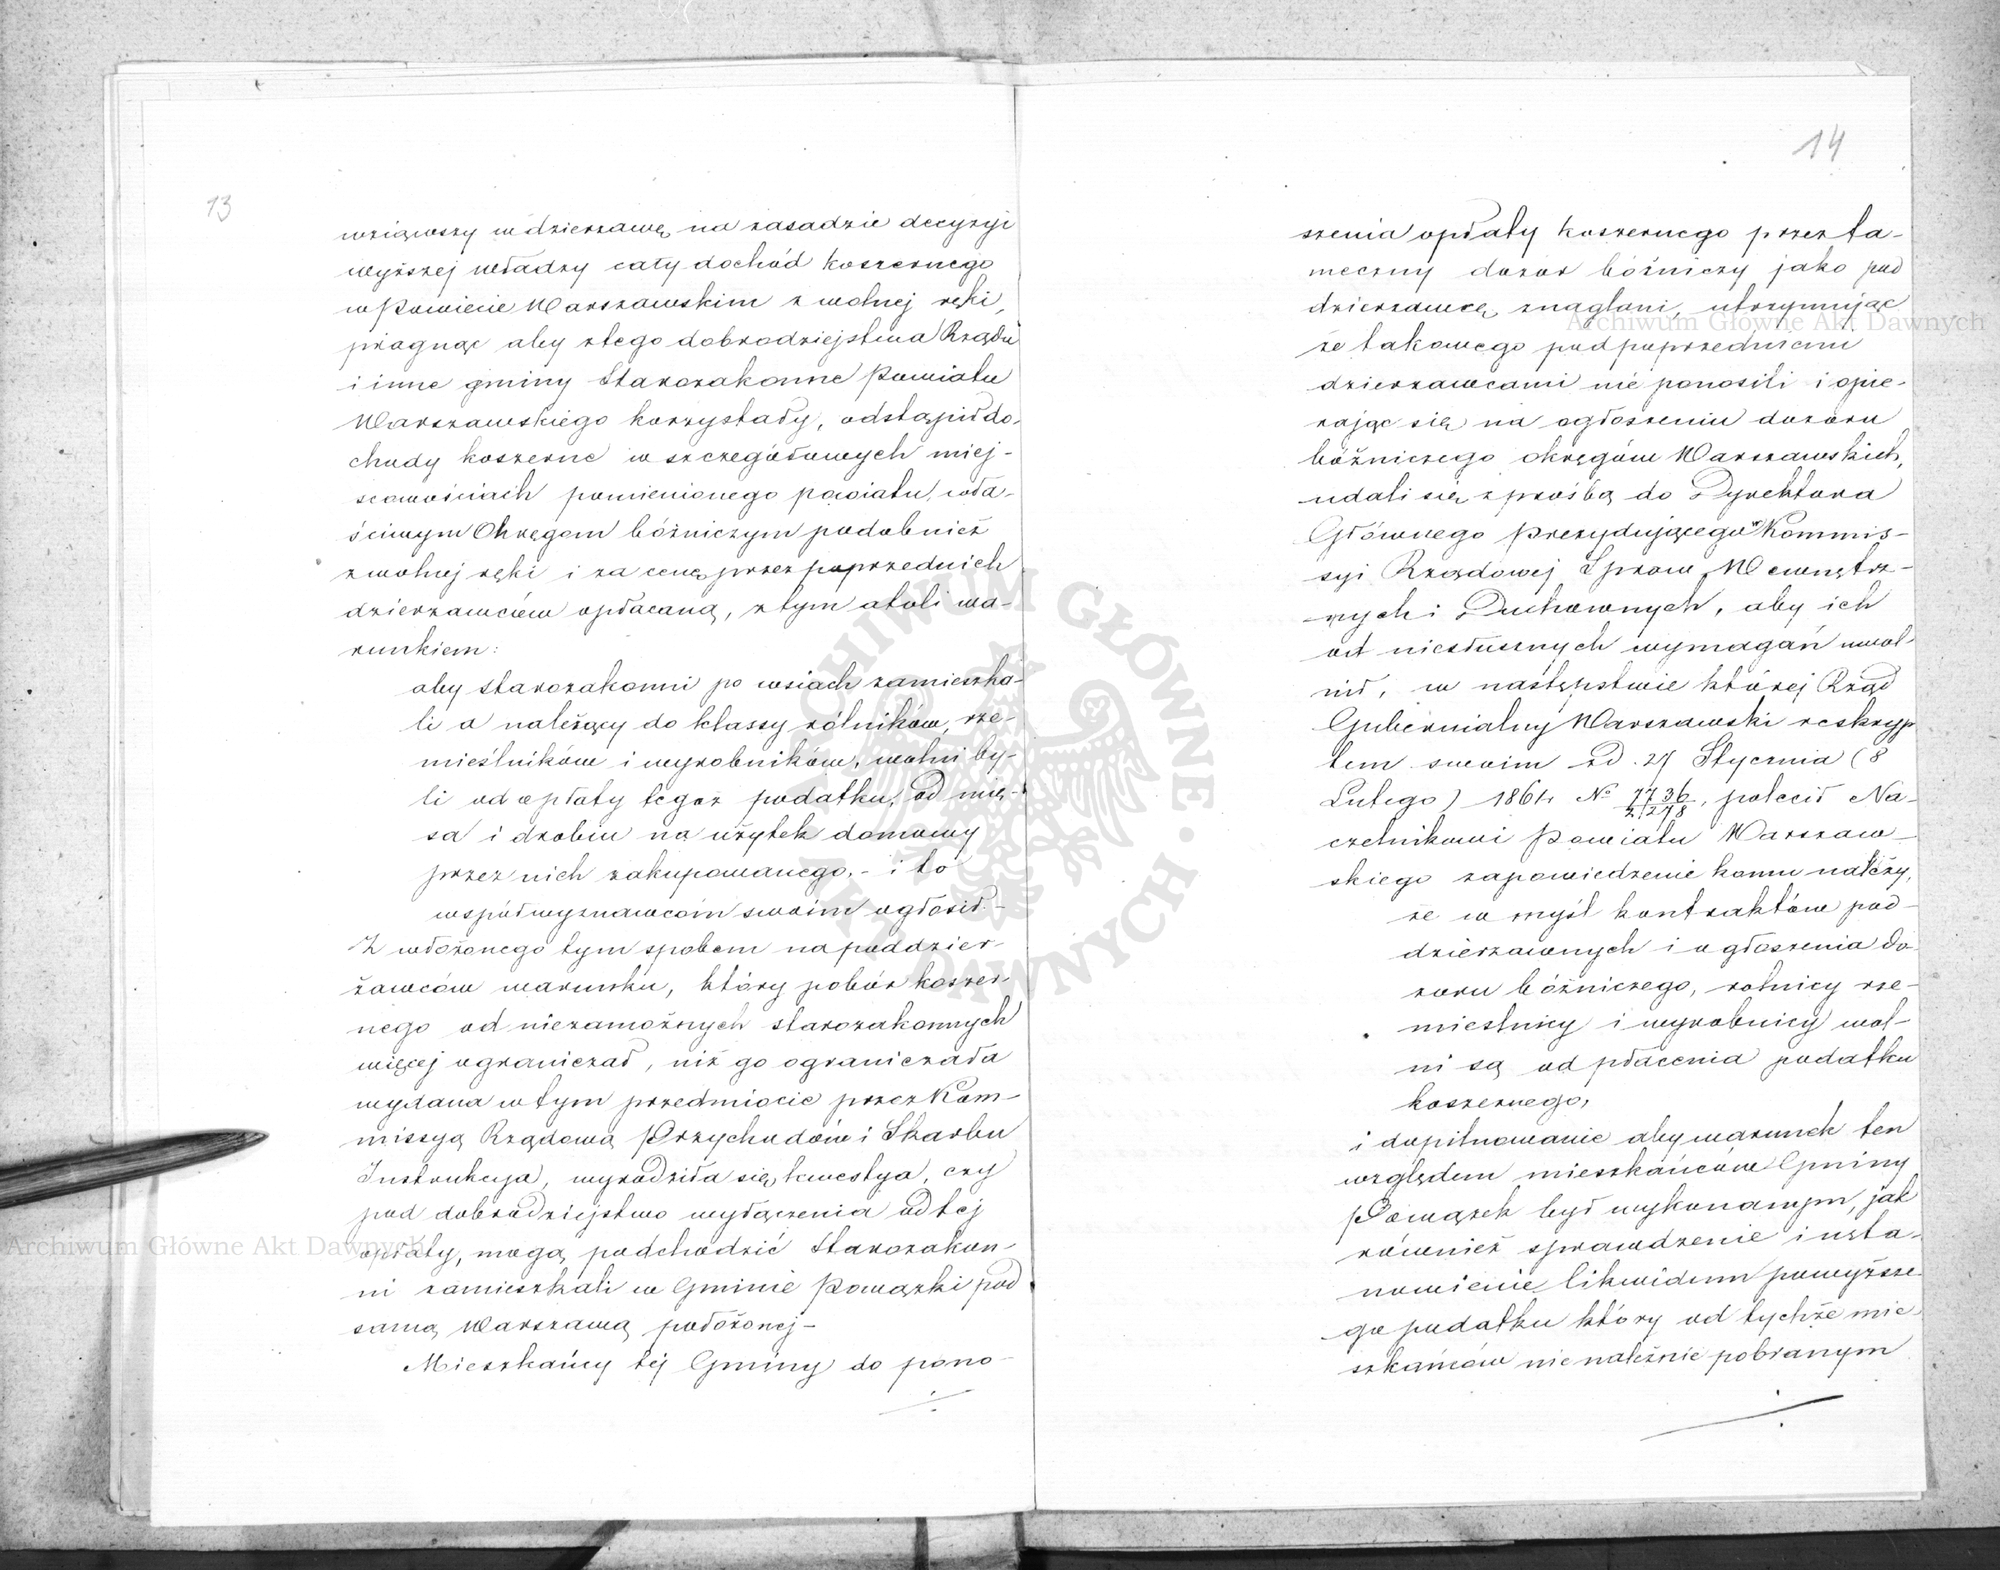 13
wziąwszy w dzierżawę na zasadzie decyzyi
wyższej władzy cały dochód koszernego
w Powiecie Warszawskim z wolnej ręki,
pragnąc aby z tego dobrodziejstwa Rządu
i inne gminy Starozakonne Powiatu
Warszawskiego korzystały, odstąpił do-
chody koszerne w szczegółowych miej-
scowościach pomienionego powiatu, wła-
ściwym Okręgom bóżniczym podobnież
z wolnej ręki i za cenę przez poprzednich
dzierżawców opłacaną, z tym atoli wa-
runkiem:
aby starozakonni po wsiach zamieszka-
li a należący do klassy rólników, rze-
mieślników i wyrobników, wolni by-
li od opłaty tegoż podatku, od mię-
sa i drobiu na użytek domowy
przez nich zakupowanego, - i to
współwyznawcom swoim ogłosił. -
Z włożonego tym spobem na poddzier-
żawców warunku, który pobór koszer-
nego od niezamożnych starozakonnych
więcej ograniczał, niż go ograniczała
wydana w tym przedmiocie przez Kom-
missyą Rządową Przychodów i Skarbu
Instrukcya, wyrodziła się kwestya, czy
pod dobrodziejstwo wyłączenia od tej
opłaty, mogą podchodzić Starozakon-
ni zamieszkali w Gminie Powązki pod
samą Warszawą położonej -
Mieszkańcy téj Gminy do pono-
14
szenia opłaty koszernego przez ta-
meczny dozór bóżniczy jako pod
dzierżawcę znagłani, utrzymując
że takowego pod poprzedniemi
dzierżawcami nie ponosili i opie-
rając się na ogłoszeniu dozoru
bóżniczego okręgów Warszawskich,
udali się z prośbą do Dyrektora
Głównego Prezydującego w Kommis-
syi Rządowej Spraw Wewnętrz-
nych i Duchownych, aby ich
od niesłusznych wymagań uwol-
nił, w następstwie której Rząd
Gubernialny Warszawski reskryp
tem swoim z d. 27 Stycznia (8
Lutego) 1864 № 7736/2278, polecił Na-
czelnikowi Powiatu Warszaw-
skiego zapowiedzenie komu należy,
że w myśl kontraktów pod-
dzierżawnych i ogłoszenia do-
zoru bóżniczego, rolnicy rze-
mieślnicy i wyrobnicy wol-
ni są od płacenia podatku
koszernego,
i dopilnowanie aby warunek ten
względem mieszkańców Gminy
Powązek był wykonanym, jak
również sprawdzenie i usta-
nowienie likwidum powyższe
go podatku który od tychże mie
szkańców nienależnie pobranym
Archiwum Główne Akt Dawnych
Archiwum Główne Akt Dawnych
ARCHIWUM GŁÓWNE AKT DAWNYCH